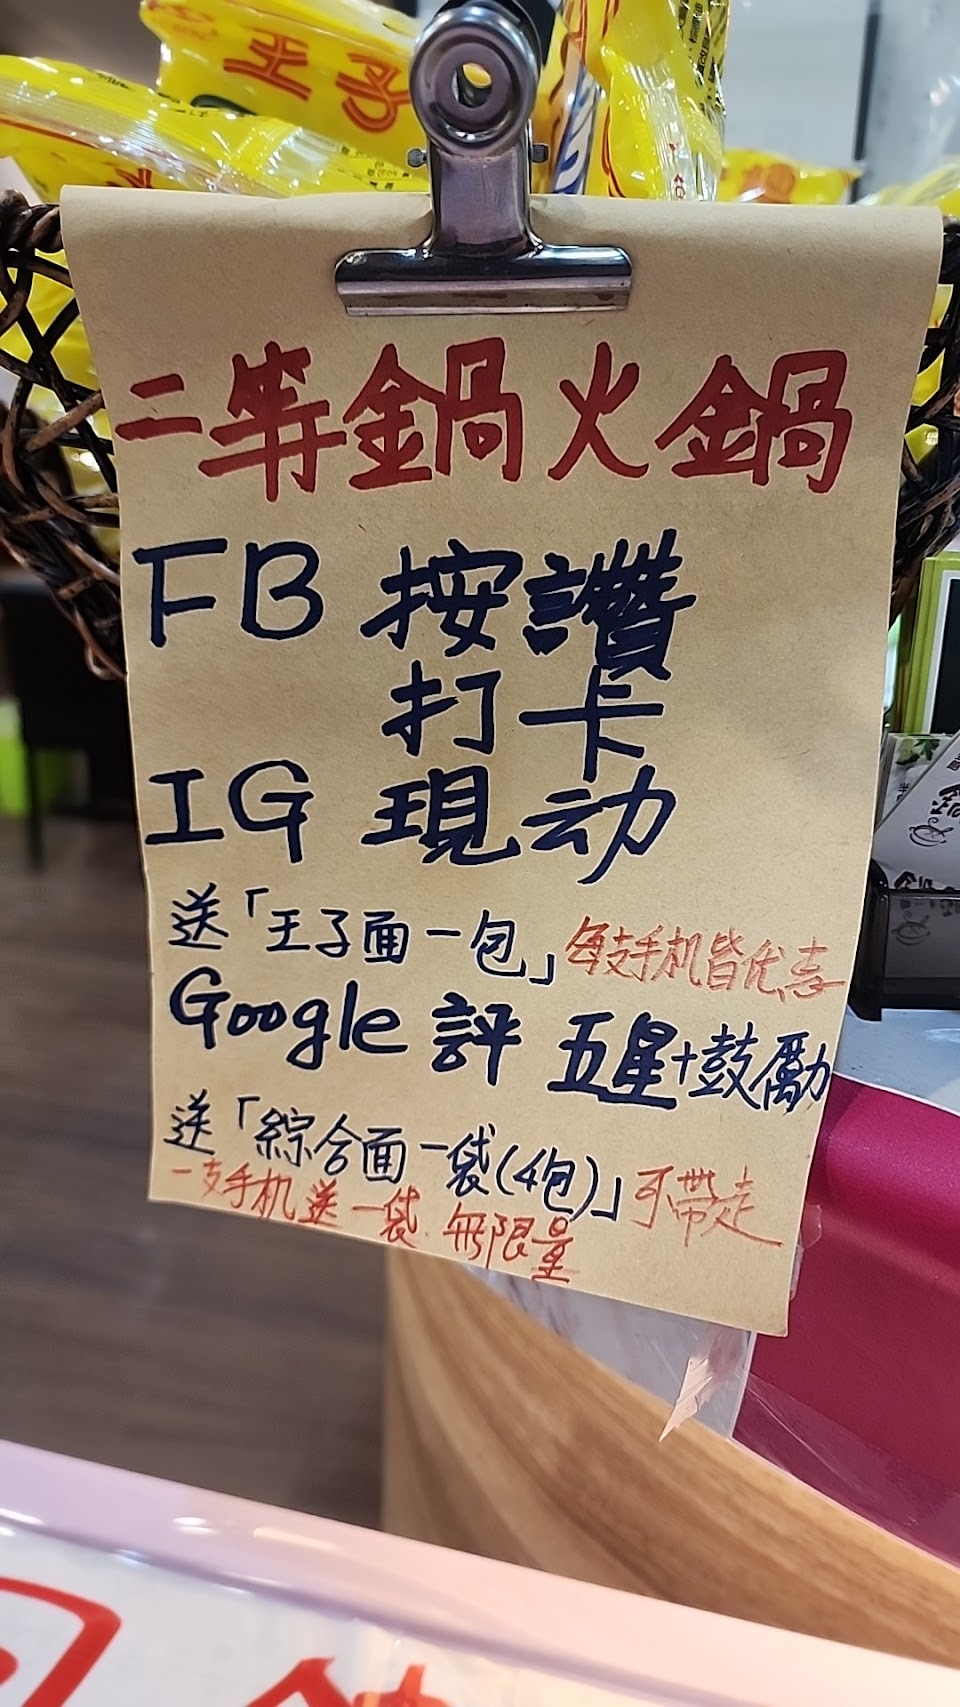 王子
二等鍋火鍋
FB 按讚
打卡
IG 現动
送「王子面一包」每支手机皆优惠
Google 評 五星+鼓勵
送「綜合面一袋(4包)」可帶走
一支手机送一袋 無限量